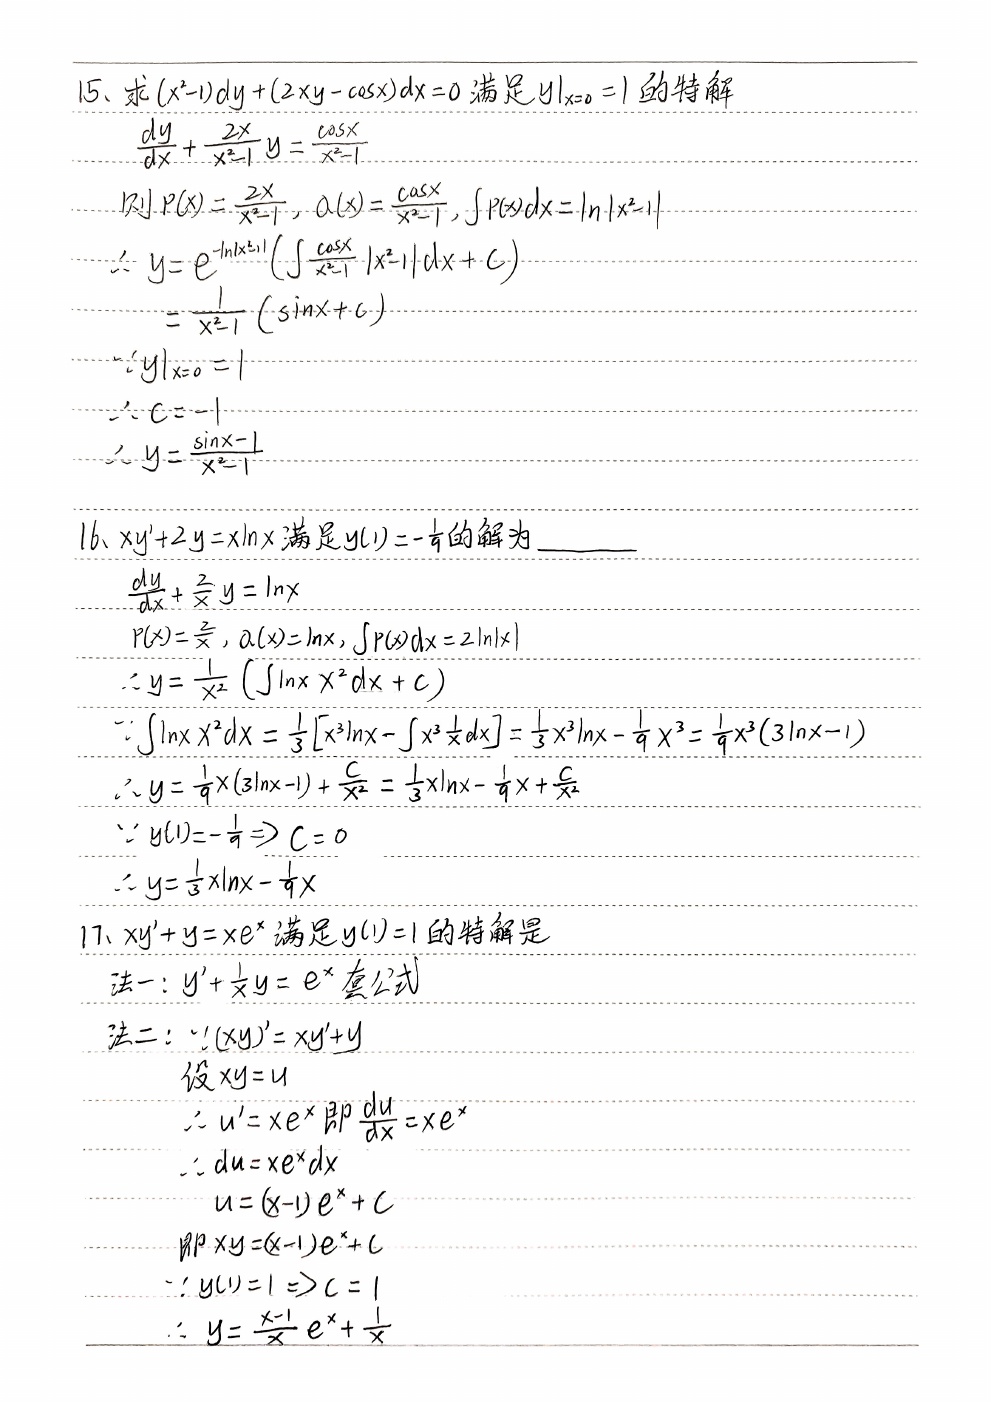 15、求(x²-1)dy+(2xy-cosx)dx=0满足y|x=0=1的特解
dy/dx + 2x/(x²-1) y = cosx/(x²-1)
则P(x)=2x/(x²-1), Q(x)=cosx/(x²-1), ∫P(x)dx=ln|x²-1|
∴ y=e^(-ln|x²-1|)(∫cosx/(x²-1) |x²-1|dx+C)
= 1/(x²-1) (sinx+c)
∵y|x=0=1
∴ C=-1
∴ y=(sinx-1)/(x²-1)
16、xy'+2y=xlnx满足y(1)=-1/9的解为______
dy/dx + 2/x y=lnx
P(x)=2/x, Q(x)=lnx, ∫P(x)dx=2ln|x|
∴y=1/x² (∫lnx x²dx+C)
∵∫lnx x²dx=1/3[x³lnx-∫x³ 1/x dx]=1/3x³lnx-1/9x³=1/9x³(3lnx-1)
∴y=1/9x(3lnx-1)+C/x²=1/3xlnx-1/9x+C/x²
∵ y(1)=-1/9⇒C=0
∴ y=1/3xlnx-1/9x
17、xy'+y=xeˣ满足y(1)=1的特解是
法一: y'+1/x y=eˣ 套公式
法二: ∵(xy)'=xy'+y
设xy=u
∴ u'=xeˣ即du/dx=xeˣ
∴ du=xeˣdx
u=(x-1)eˣ+C
即xy=(x-1)eˣ+C
∵ y(1)=1⇒C=1
∴ y=(x-1)/x eˣ+1/x